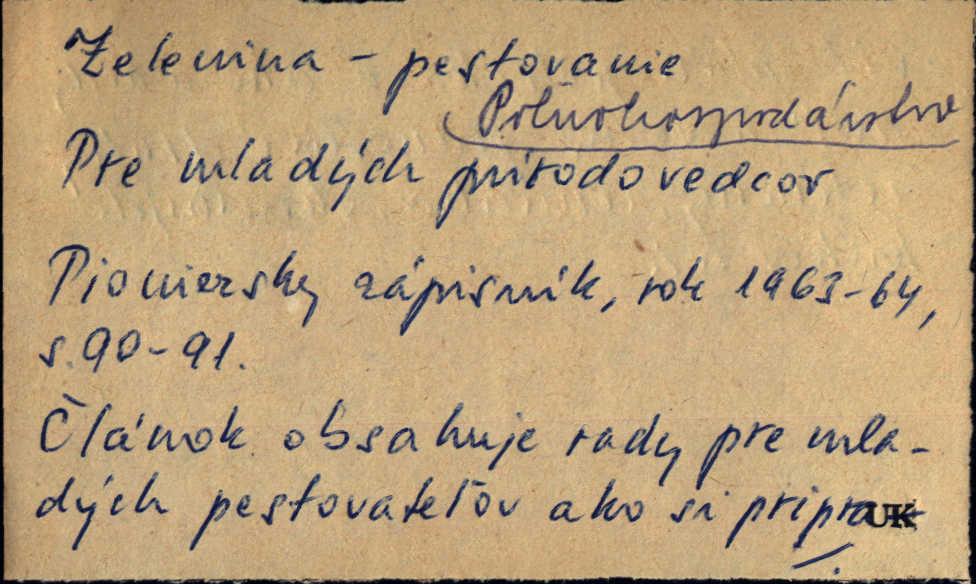 Zelenina - pestovanie
Poľnohospodárstvo
Pre mladých prírodovedcov
Pioniersky zápisník, rok 1963-64,
s. 90-91.
Článok obsahuje rady pre mla-
dých pestovateľov ako si pripra-
UK
./.